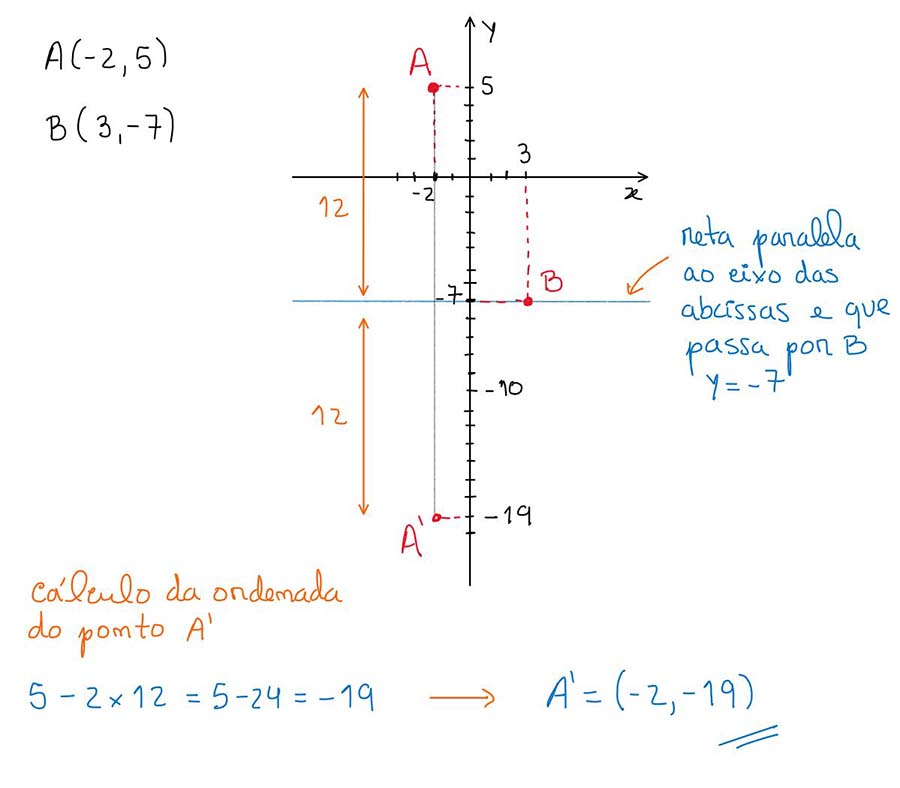 A(-2, 5)
B(3, -7)
y
A
5
3
-2
x
12
B
-7
reta paralela
ao eixo das
abcissas e que
passa por B
y = -7
-10
12
A'
-19
cálculo da ordenada
do ponto A'
5 - 2 × 12 = 5 - 24 = -19 → A' = (-2, -19)